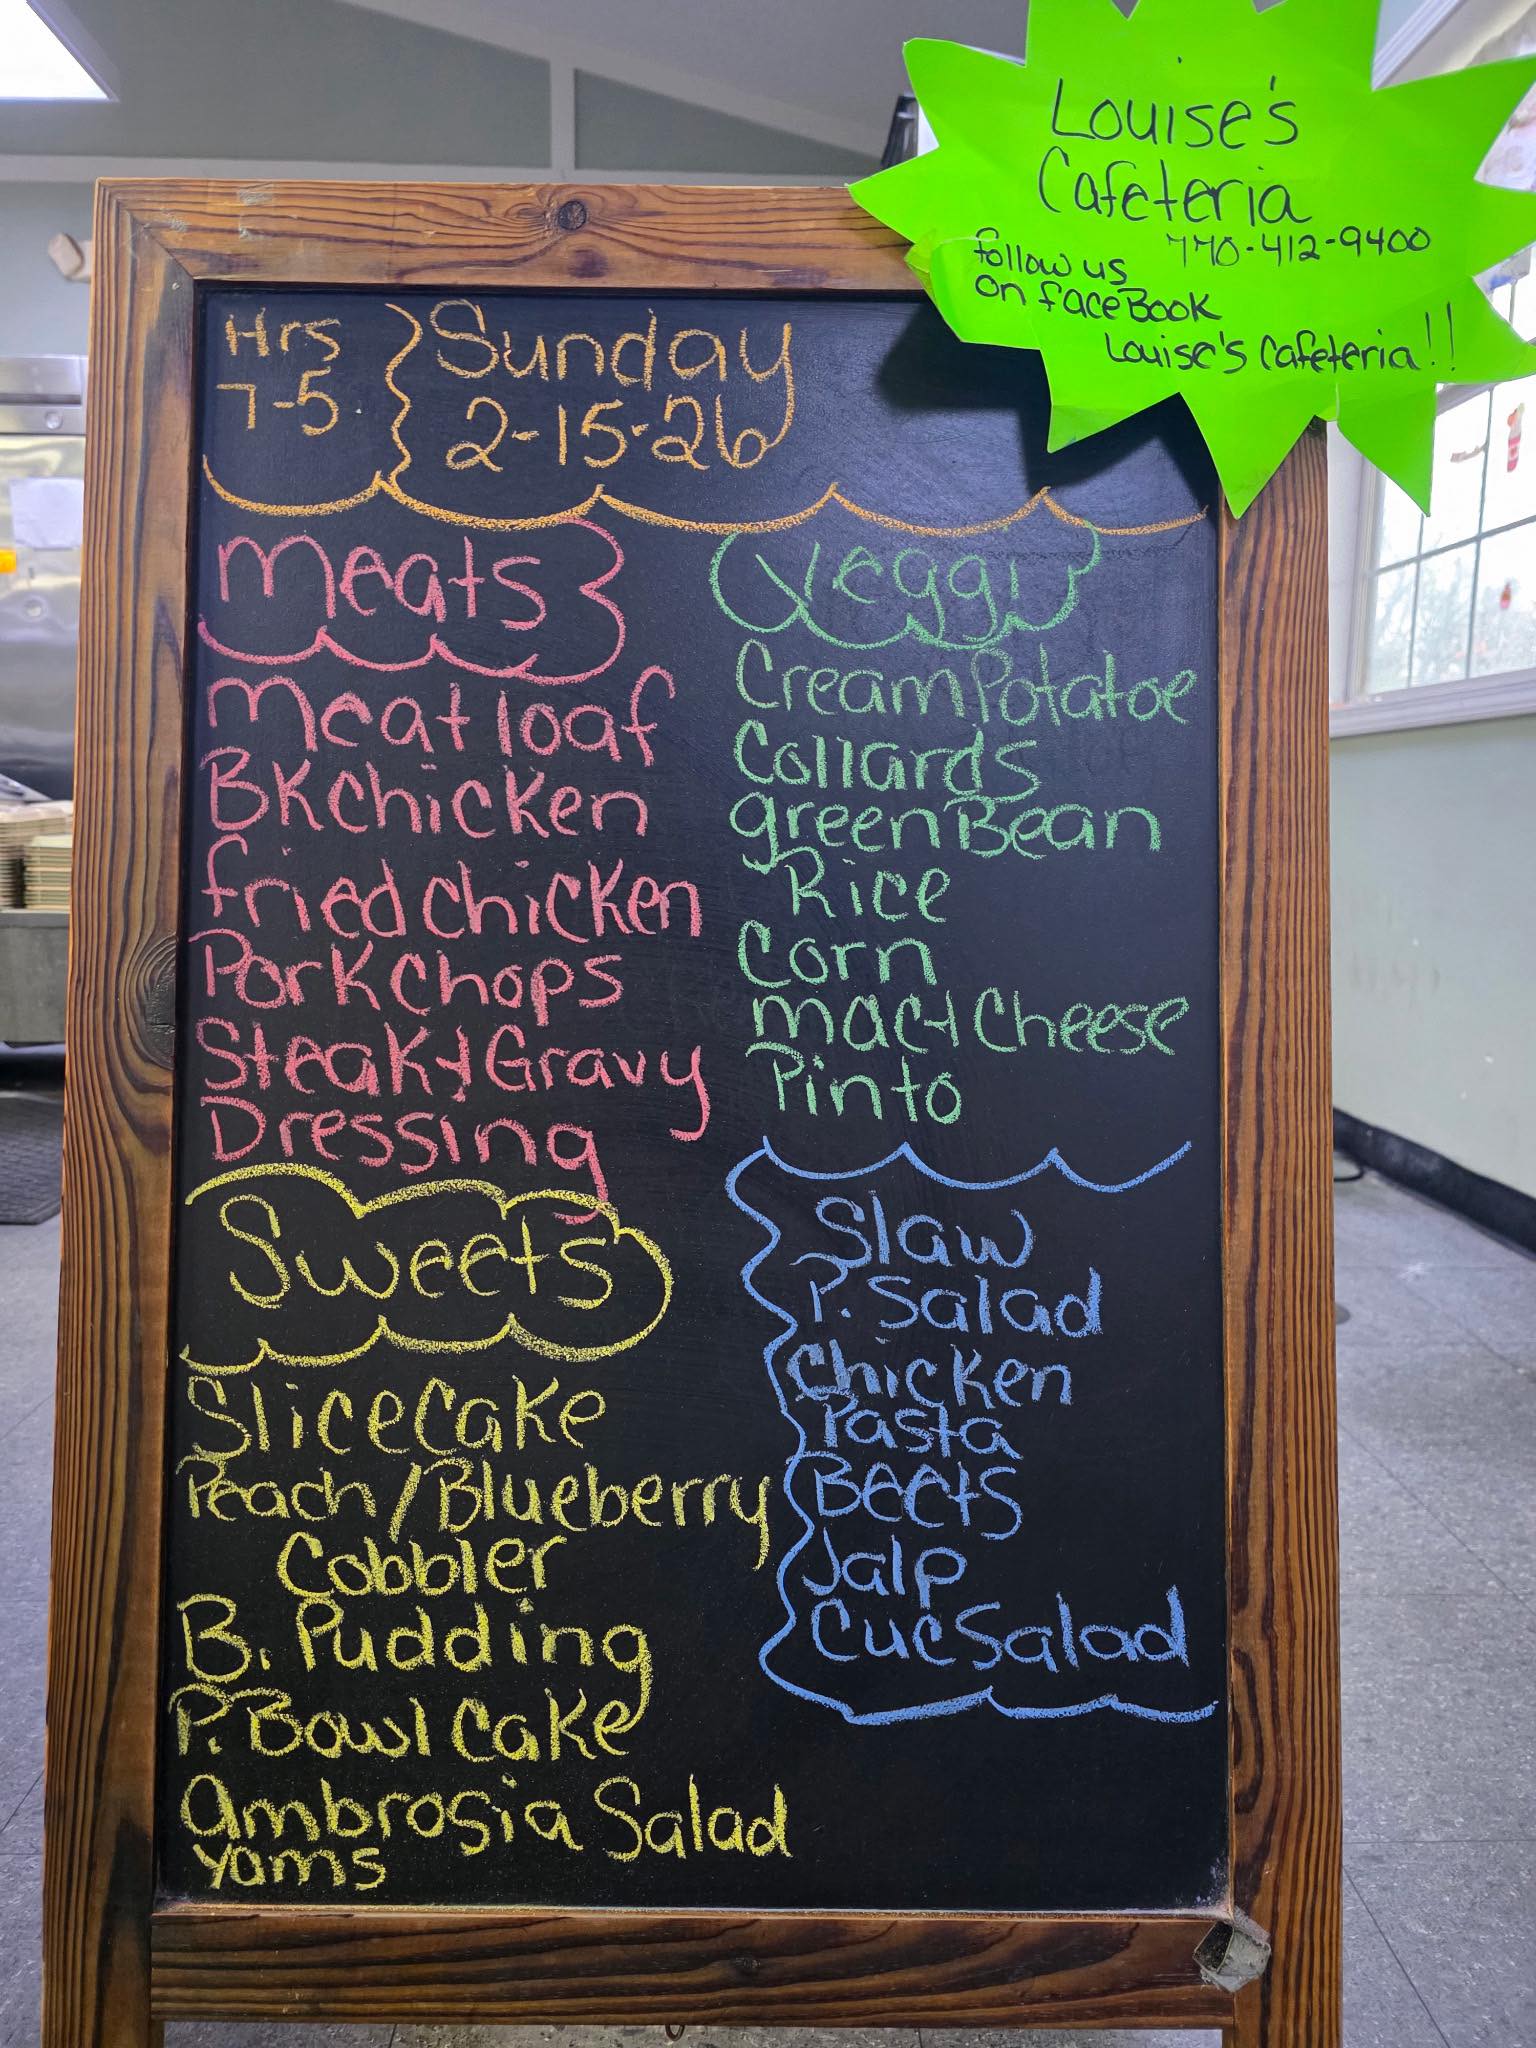 Louise's
Cafeteria
770-412-9400
follow us
on faceBook
Louise's Cafeteria!!
Hrs
7-5
Sunday
2-15-26
Meats
Meat loaf
BK Chicken
fried chicken
Pork Chops
Steak + Gravy
Dressing
Veggi
Cream Potatoe
Collards
green Bean
Rice
Corn
mac + Cheese
Pinto
Sweets
Slice Cake
Peach/Blueberry
Cobbler
B. Pudding
P. Bowl Cake
Ambrosia Salad
Yams
Slaw
P. Salad
Chicken
Pasta
Beets
Jalp
Cuc Salad